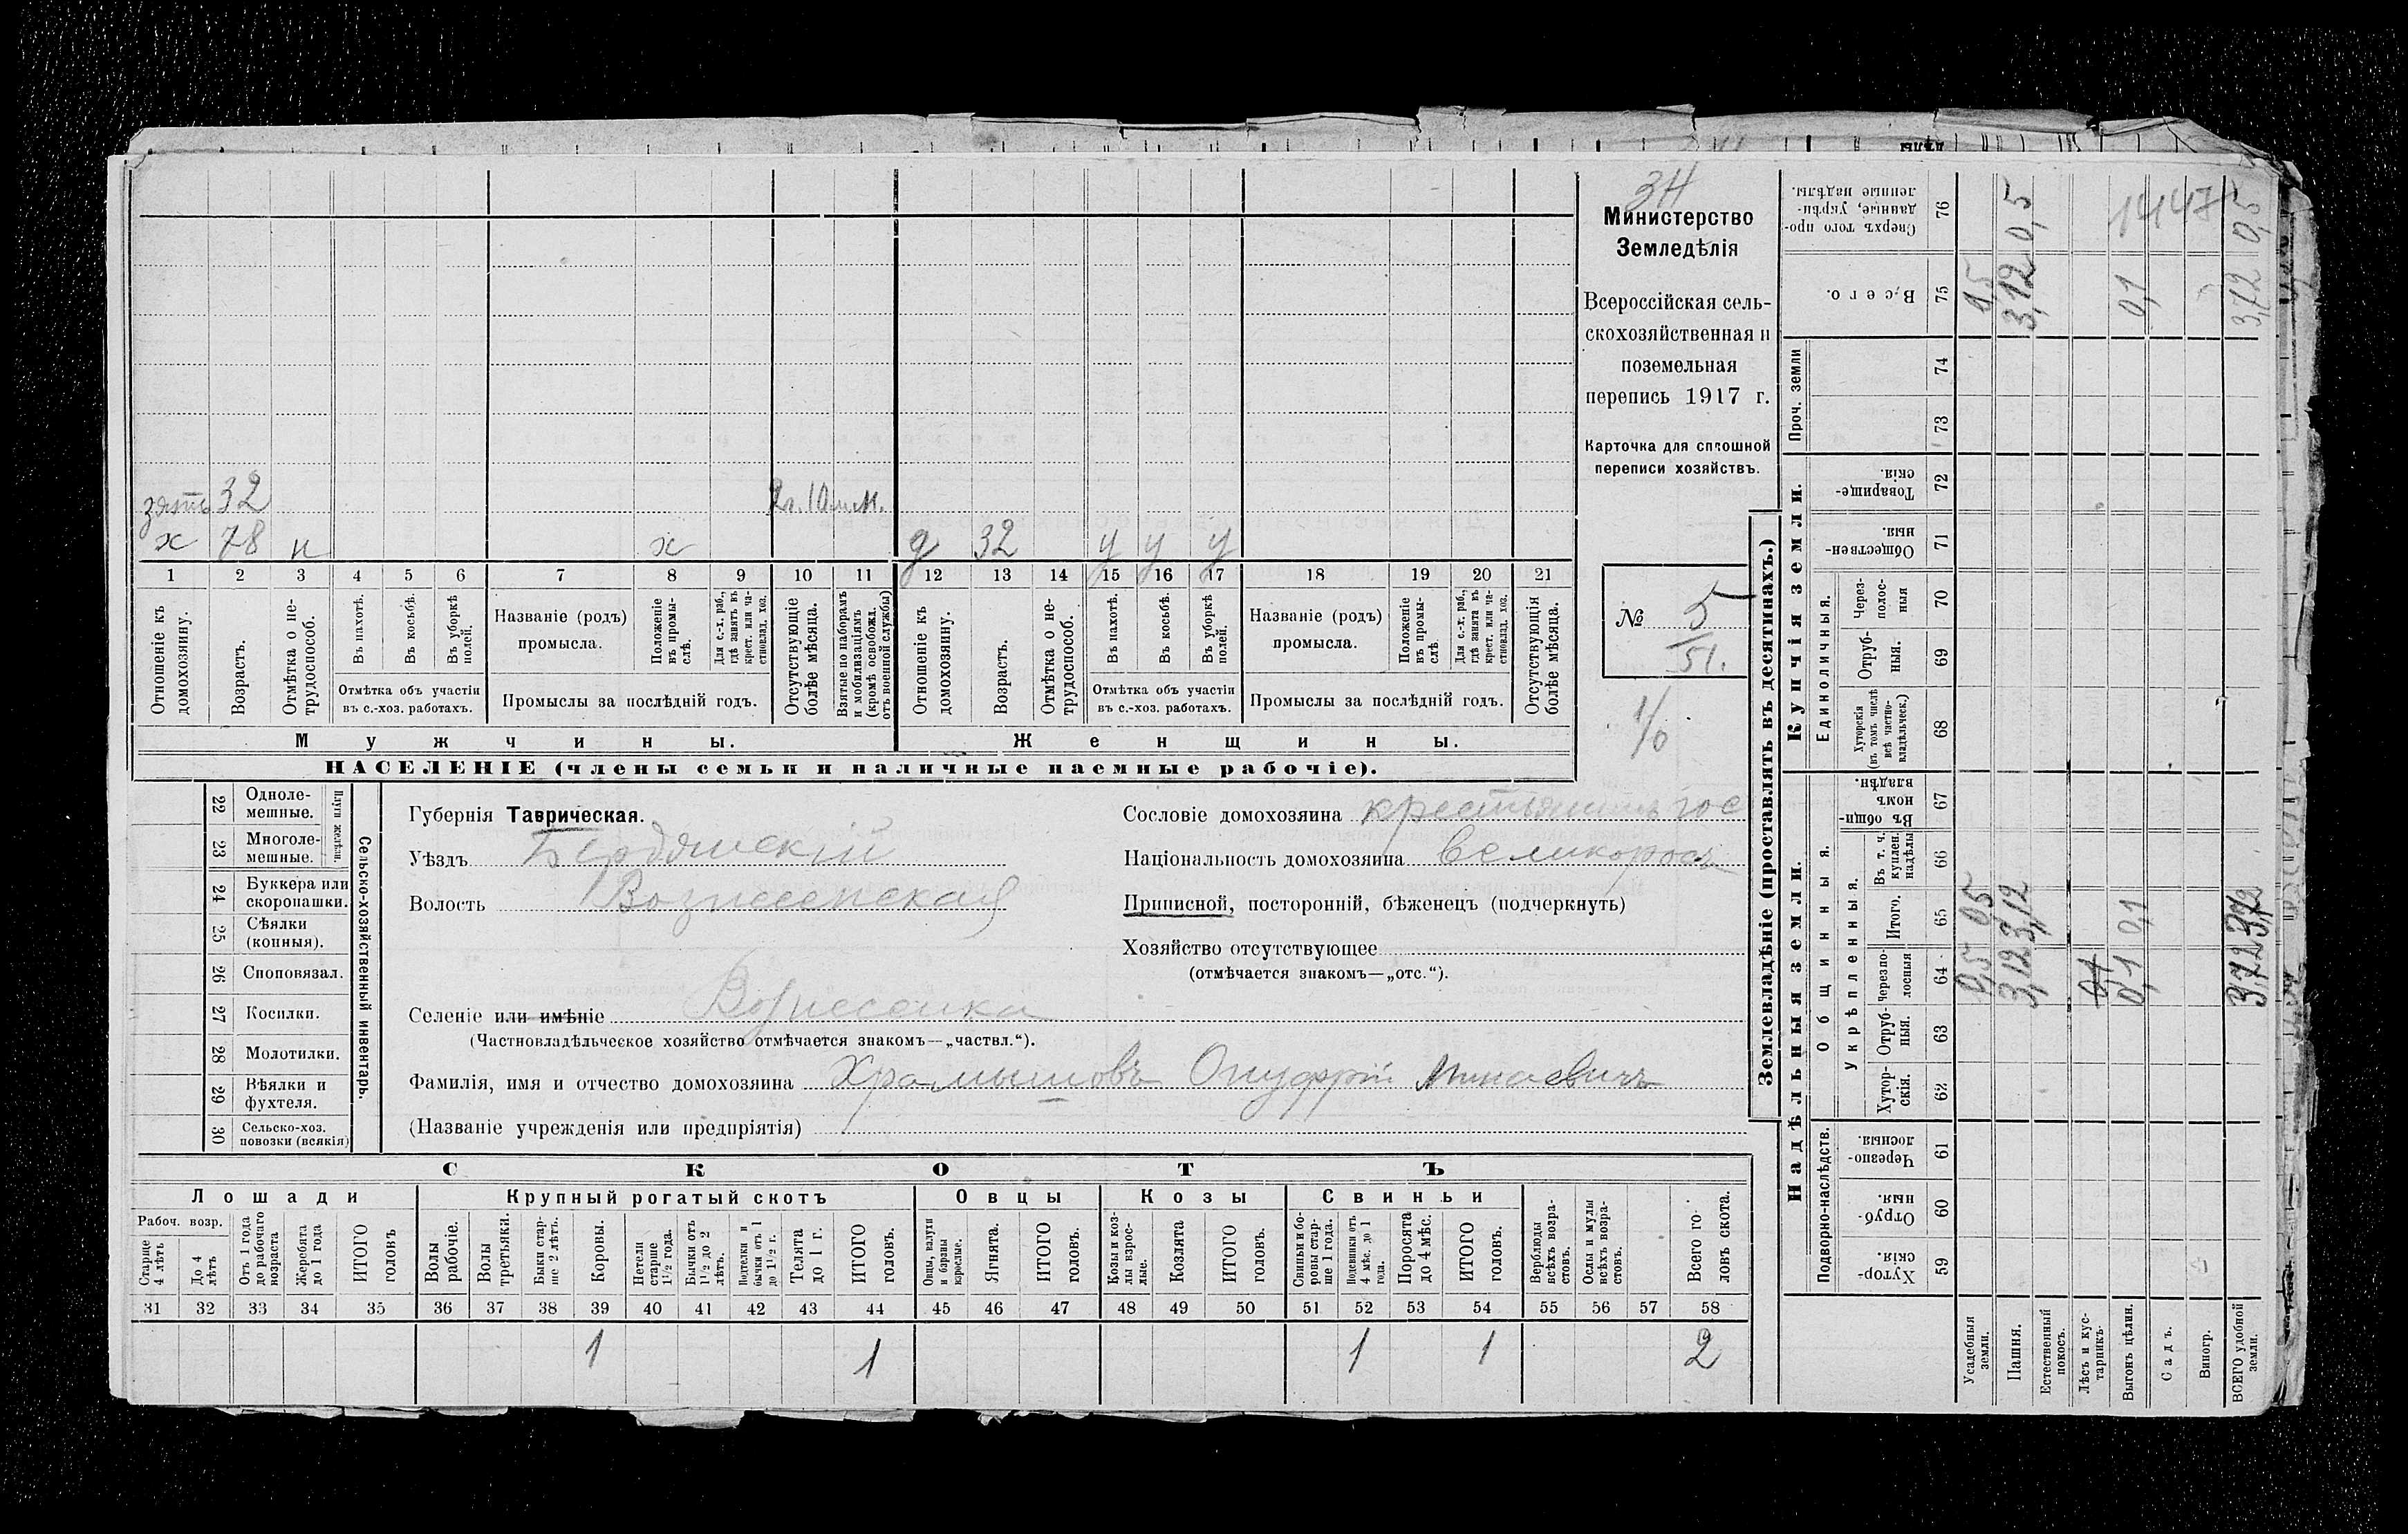 3Н
Министерство
Земледѣлія
Всероссійская сель-
скохозяйственная и
поземельная
перепись 1917 г.
Карточка для сплошной
переписи хозяйствъ.
№ 5
51.
1/0
зять 32 2 г. 10 м.
х 78 н х д 32 у у у
1 2 3 4 5 6 7 8 9 10 11 12 13 14 15 16 17 18 19 20 21
Отношеніе къ домохозяину.
Возрастъ.
Отмѣтка о не-трудоспособ.
Въ пахотѣ.
Въ косьбѣ.
Въ уборкѣ полей.
Отмѣтка объ участіи
въ с.-хоз. работахъ.
Названіе (родъ)
промысла.
Положеніе въ промы-слѣ.
Для с.-х. раб., гдѣ занятъ въ крест. или ча-стновлад. хоз.
Промыслы за послѣдній годъ.
Отсутствующіе болѣе мѣсяца.
Взятые по наборамъ и мобилизаціямъ (кромѣ освобожд. отъ военной службы)
Отношеніе къ домохозяину.
Возрастъ.
Отмѣтка о не-трудоспособ.
Въ пахотѣ.
Въ косьбѣ.
Въ уборкѣ полей.
Отмѣтка объ участіи
въ с.-хоз. работахъ.
Названіе (родъ)
промысла.
Положеніе въ промы-слѣ
Для с.-х. раб., гдѣ занята въ крест. или ча-стновлад. хоз.
Промыслы за послѣдній годъ.
Отсутствующія болѣе мѣсяца.
Мужчины. Женщины.
НАСЕЛЕНІЕ (члены семьи и наличные наемные рабочіе).
22 Одноле-мешные.
23 Многоле-мешные.
Плуги желѣзн.
24 Буккера или скоропашки.
25 Сѣялки (конныя).
26 Сноповязал.
27 Косилки.
28 Молотилки.
29 Вѣялки и фухтеля.
30 Сельско-хоз. повозки (всякія)
Сельско-хозяйственный инвентарь.
Губернія Таврическая.
Уѣздъ Бердянскій
Волость Вознесенская
Селеніе или имѣніе Вознесенка
(Частновладѣльческое хозяйство отмѣчается знакомъ—„частвл.“).
Фамилія, имя и отчество домохозяина Храмышовъ Онуфрій Минаевичъ
(Названіе учрежденія или предпріятія)
Сословіе домохозяина крестьянинъ
Національность домохозяина великороссъ
Приписной, посторонній, бѣженецъ (подчеркнуть)
Хозяйство отсутствующее
(отмѣчается знакомъ—„отс.“).
СКОТЪ
Лошади Крупный рогатый скотъ Овцы Козы Свиньи
Рабоч. возр.
Старше 4 лѣтъ
До 4 лѣтъ
Отъ 1 года до рабочаго возраста
Жеребята до 1 года
ИТОГО головъ
Волы рабочіе.
Волы третьяки.
Быки стар-ше 2 лѣтъ.
Коровы.
Нетели старше 1½ года.
Бычки отъ 1½ до 2 лѣтъ.
Подтелки и бычки отъ 1 до 1½ г.
Телята до 1 г.
ИТОГО головъ.
Овцы, валухи и бараны взрослые.
Ягнята.
ИТОГО головъ.
Козы и коз-лы взрос-лые.
Козлята
ИТОГО головъ.
Свиньи и бо-ровы стар-ше 1 года.
Подсвинки отъ 4 мѣс. до 1 года.
Поросята до 4 мѣс.
ИТОГО головъ.
Верблюды всѣхъ возра-стовъ.
Ослы и мулы всѣхъ возра-стовъ.
Всего го-ловъ скота.
31 32 33 34 35 36 37 38 39 40 41 42 43 44 45 46 47 48 49 50 51 52 53 54 55 56 57 58
1 1 1 1 2
Землевладѣніе (проставлять въ десятинахъ.)
Надѣльныя земли. Купчія земли.
Подворно-наслѣдств.
Общинныя.
Укрѣпленныя.
Единоличныя.
Проч. земли
Хутор-скія. 59
Отруб-ныя. 60
Черезпо-лосныя. 61
Хутор-скія. 62
Отруб-ныя. 63
Черезпо-лосныя 64
Итого. 65
Въ т. ч. куплен. надѣлы 66
Въ общи-номъ владѣн. 67
Хуторскія (въ томъ числѣ всѣ частно-владѣльческ.) 68
Отруб-ныя. 69
Через-полос-ныя 70
Обществен-ныя. 71
Товарище-скія. 72
73
74
Всего. 75
Сверхъ того про-данные, укрѣп-ленные надѣлы. 76
Усадебныя земли. 0,5 0,5 0,5
Пашня. 3,12 3,12 3,12 0,5
Естественный покосъ.
Лѣсъ и кус-тарникъ. 0,1
Выгонъ цѣлин. 0,1 0,1 0,1
Садъ.
Виногр.
ВСЕГО удобной земли. 3,72 3,72 3,72 0,5
1447